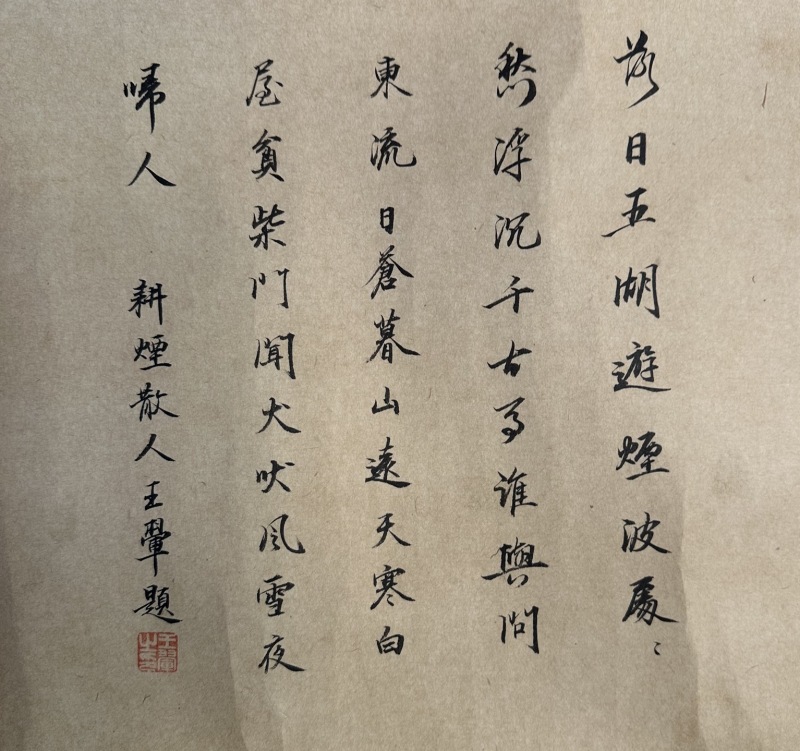 落日五湖遊煙波處〻
愁浮沉千古事誰與問
東流日蒼暮山遠天寒白
屋貧柴門聞犬吠風雪夜
啼人 耕煙散人王翬題
王翬之印